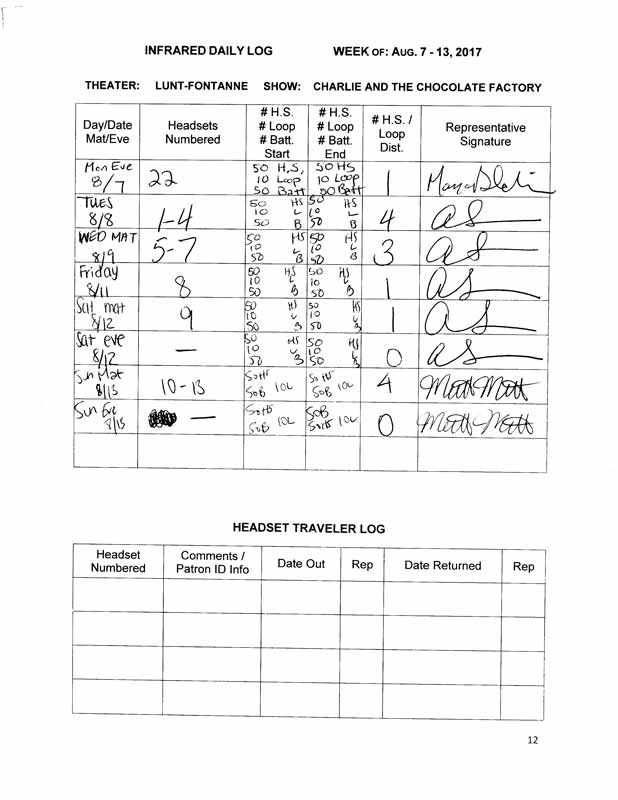 INFRARED DAILY LOG WEEK OF: AUG. 7 - 13, 2017
THEATER: LUNT-FONTANNE SHOW: CHARLIE AND THE CHOCOLATE FACTORY
Day/Date Mat/Eve Headsets Numbered # H.S. # Loop # Batt. Start # H.S. # Loop # Batt. End # H.S. / Loop Dist. Representative Signature
Mon Eve 8/7 22 50 H.S. 10 Loop 50 Batt 50 HS 10 Loop 50 Batt 1
TUES 8/8 1-4 50 HS 10 L 50 B 50 HS 10 L 50 B 4 AS
WED MAT 8/9 5-7 50 HS 10 L 50 B 50 HS 10 L 50 B 3 AS
Friday 8/11 8 50 HS 10 L 50 B 50 HS 10 L 50 B 1 AS
Sat mat 8/12 9 50 HS 10 L 50 B 50 HS 10 L 50 B 1 AS
Sat eve 8/12 — 50 HS 10 L 50 B 50 HS 10 L 50 B 0 AS
Sun Mat 8/13 10-13 50HS 50B 10L 50HS 50B 10L 4
Sun Eve 8/13 — 50HS 50B 10L 50B 50HS 10L 0
HEADSET TRAVELER LOG
Headset Numbered Comments / Patron ID Info Date Out Rep Date Returned Rep
12